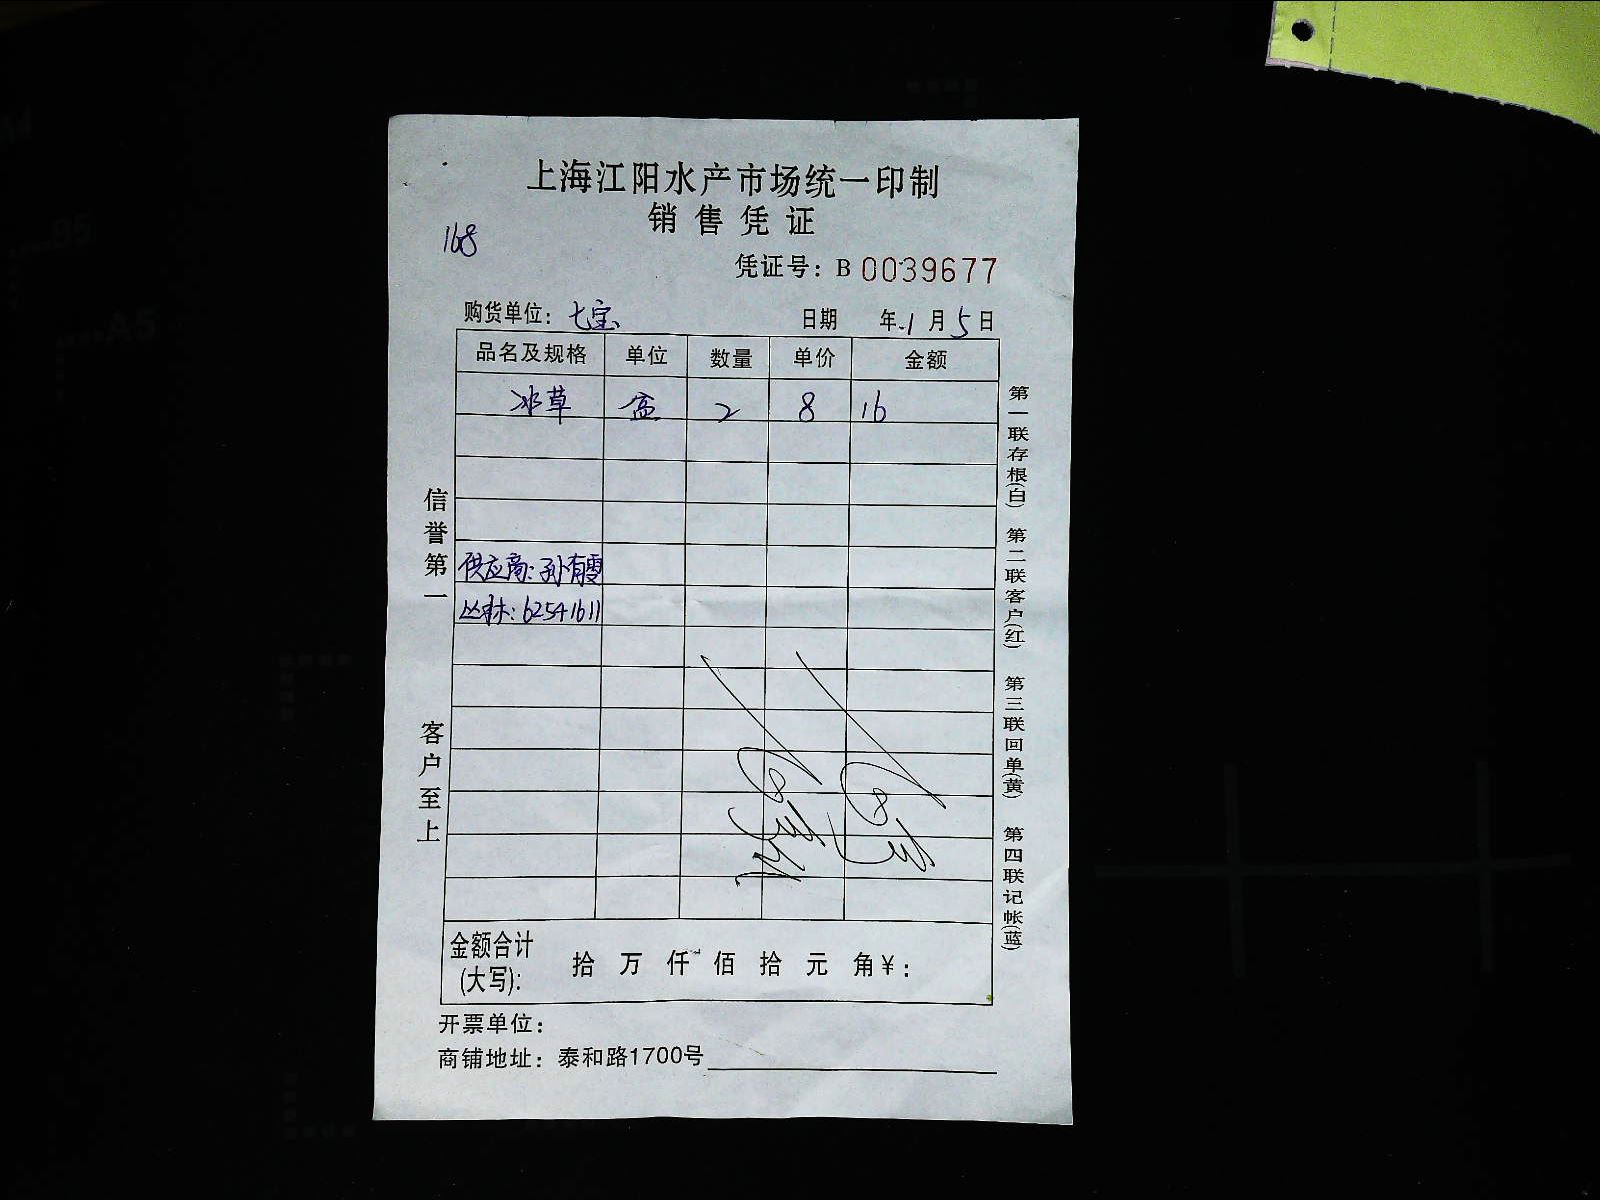 上海江阳水产市场统一印制
销售凭证
168
凭证号：B 0039677
购货单位：七宝 日期 年 1 月 5 日
品名及规格 单位 数量 单价 金额
冰草 盒 2 8 16
供应商：孙有雯
丛林：62541611
信誉第一
客户至上
第一联存根(白) 第二联客户(红) 第三联回单(黄) 第四联记帐(蓝)
金额合计(大写)： 拾 万 仟 佰 拾 元 角 ¥：
开票单位：
商铺地址：泰和路1700号